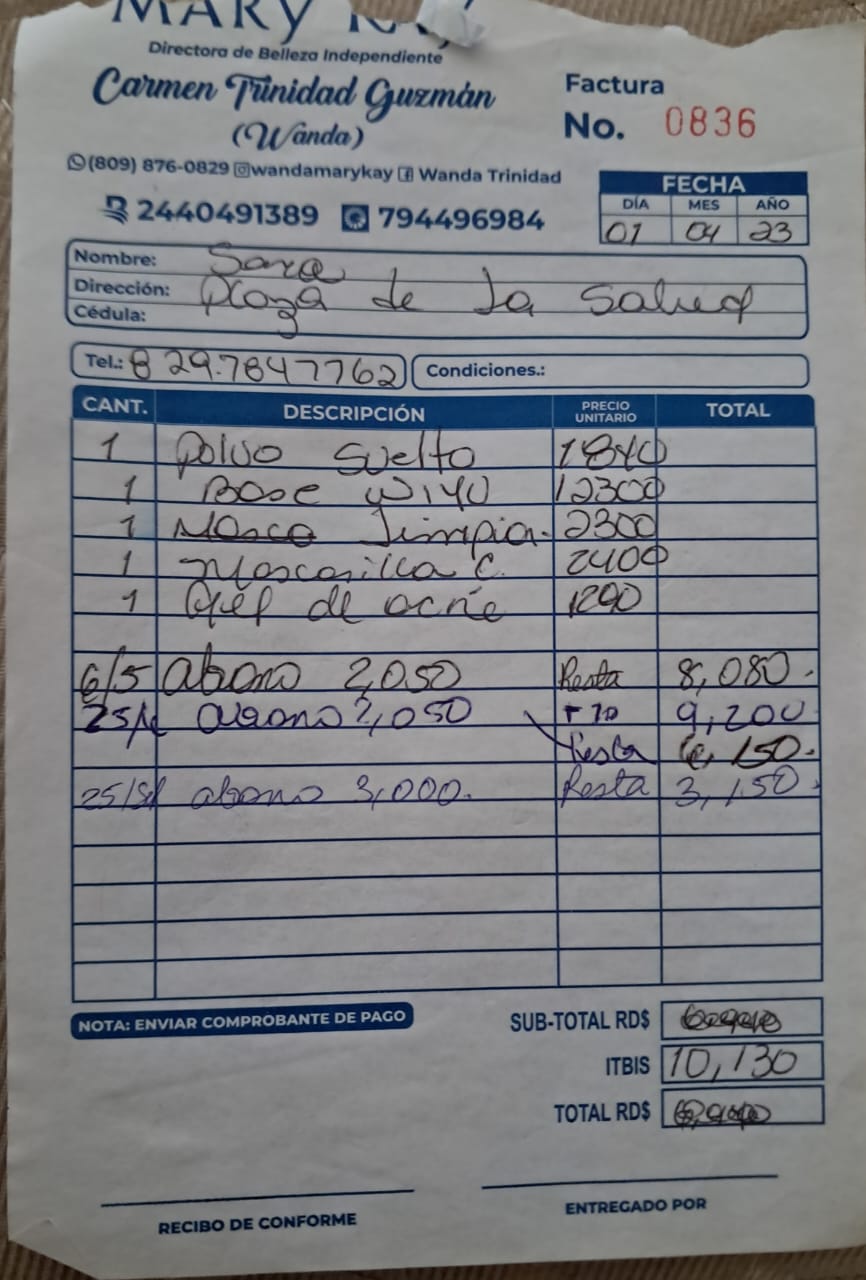 MARY KAY
Directora de Belleza Independiente
Carmen Trinidad Guzmán
(Wanda)
(809) 876-0829 wandamarykay Wanda Trinidad
2440491389 794496984
Factura
No. 0836
FECHA
DÍA MES AÑO
01 04 23
Nombre: Sara
Dirección: Plaza de la Salud
Cédula:
Tel.: 829.7847762 Condiciones.:
CANT. DESCRIPCIÓN PRECIO UNITARIO TOTAL
1 polvo suelto 1840
1 Base W140 2300
1 Masca limpia. 2300
1 Mascarilla C. 2400
1 Gel de acne 1290
6/5 abono 2,050 Resta 8,080.
25/ abono 2,050 9,200
Resta 6,150.
25/ abono 3,000. Resta 3,150.
NOTA: ENVIAR COMPROBANTE DE PAGO
SUB-TOTAL RD$
ITBIS 10,130
TOTAL RD$
RECIBO DE CONFORME
ENTREGADO POR